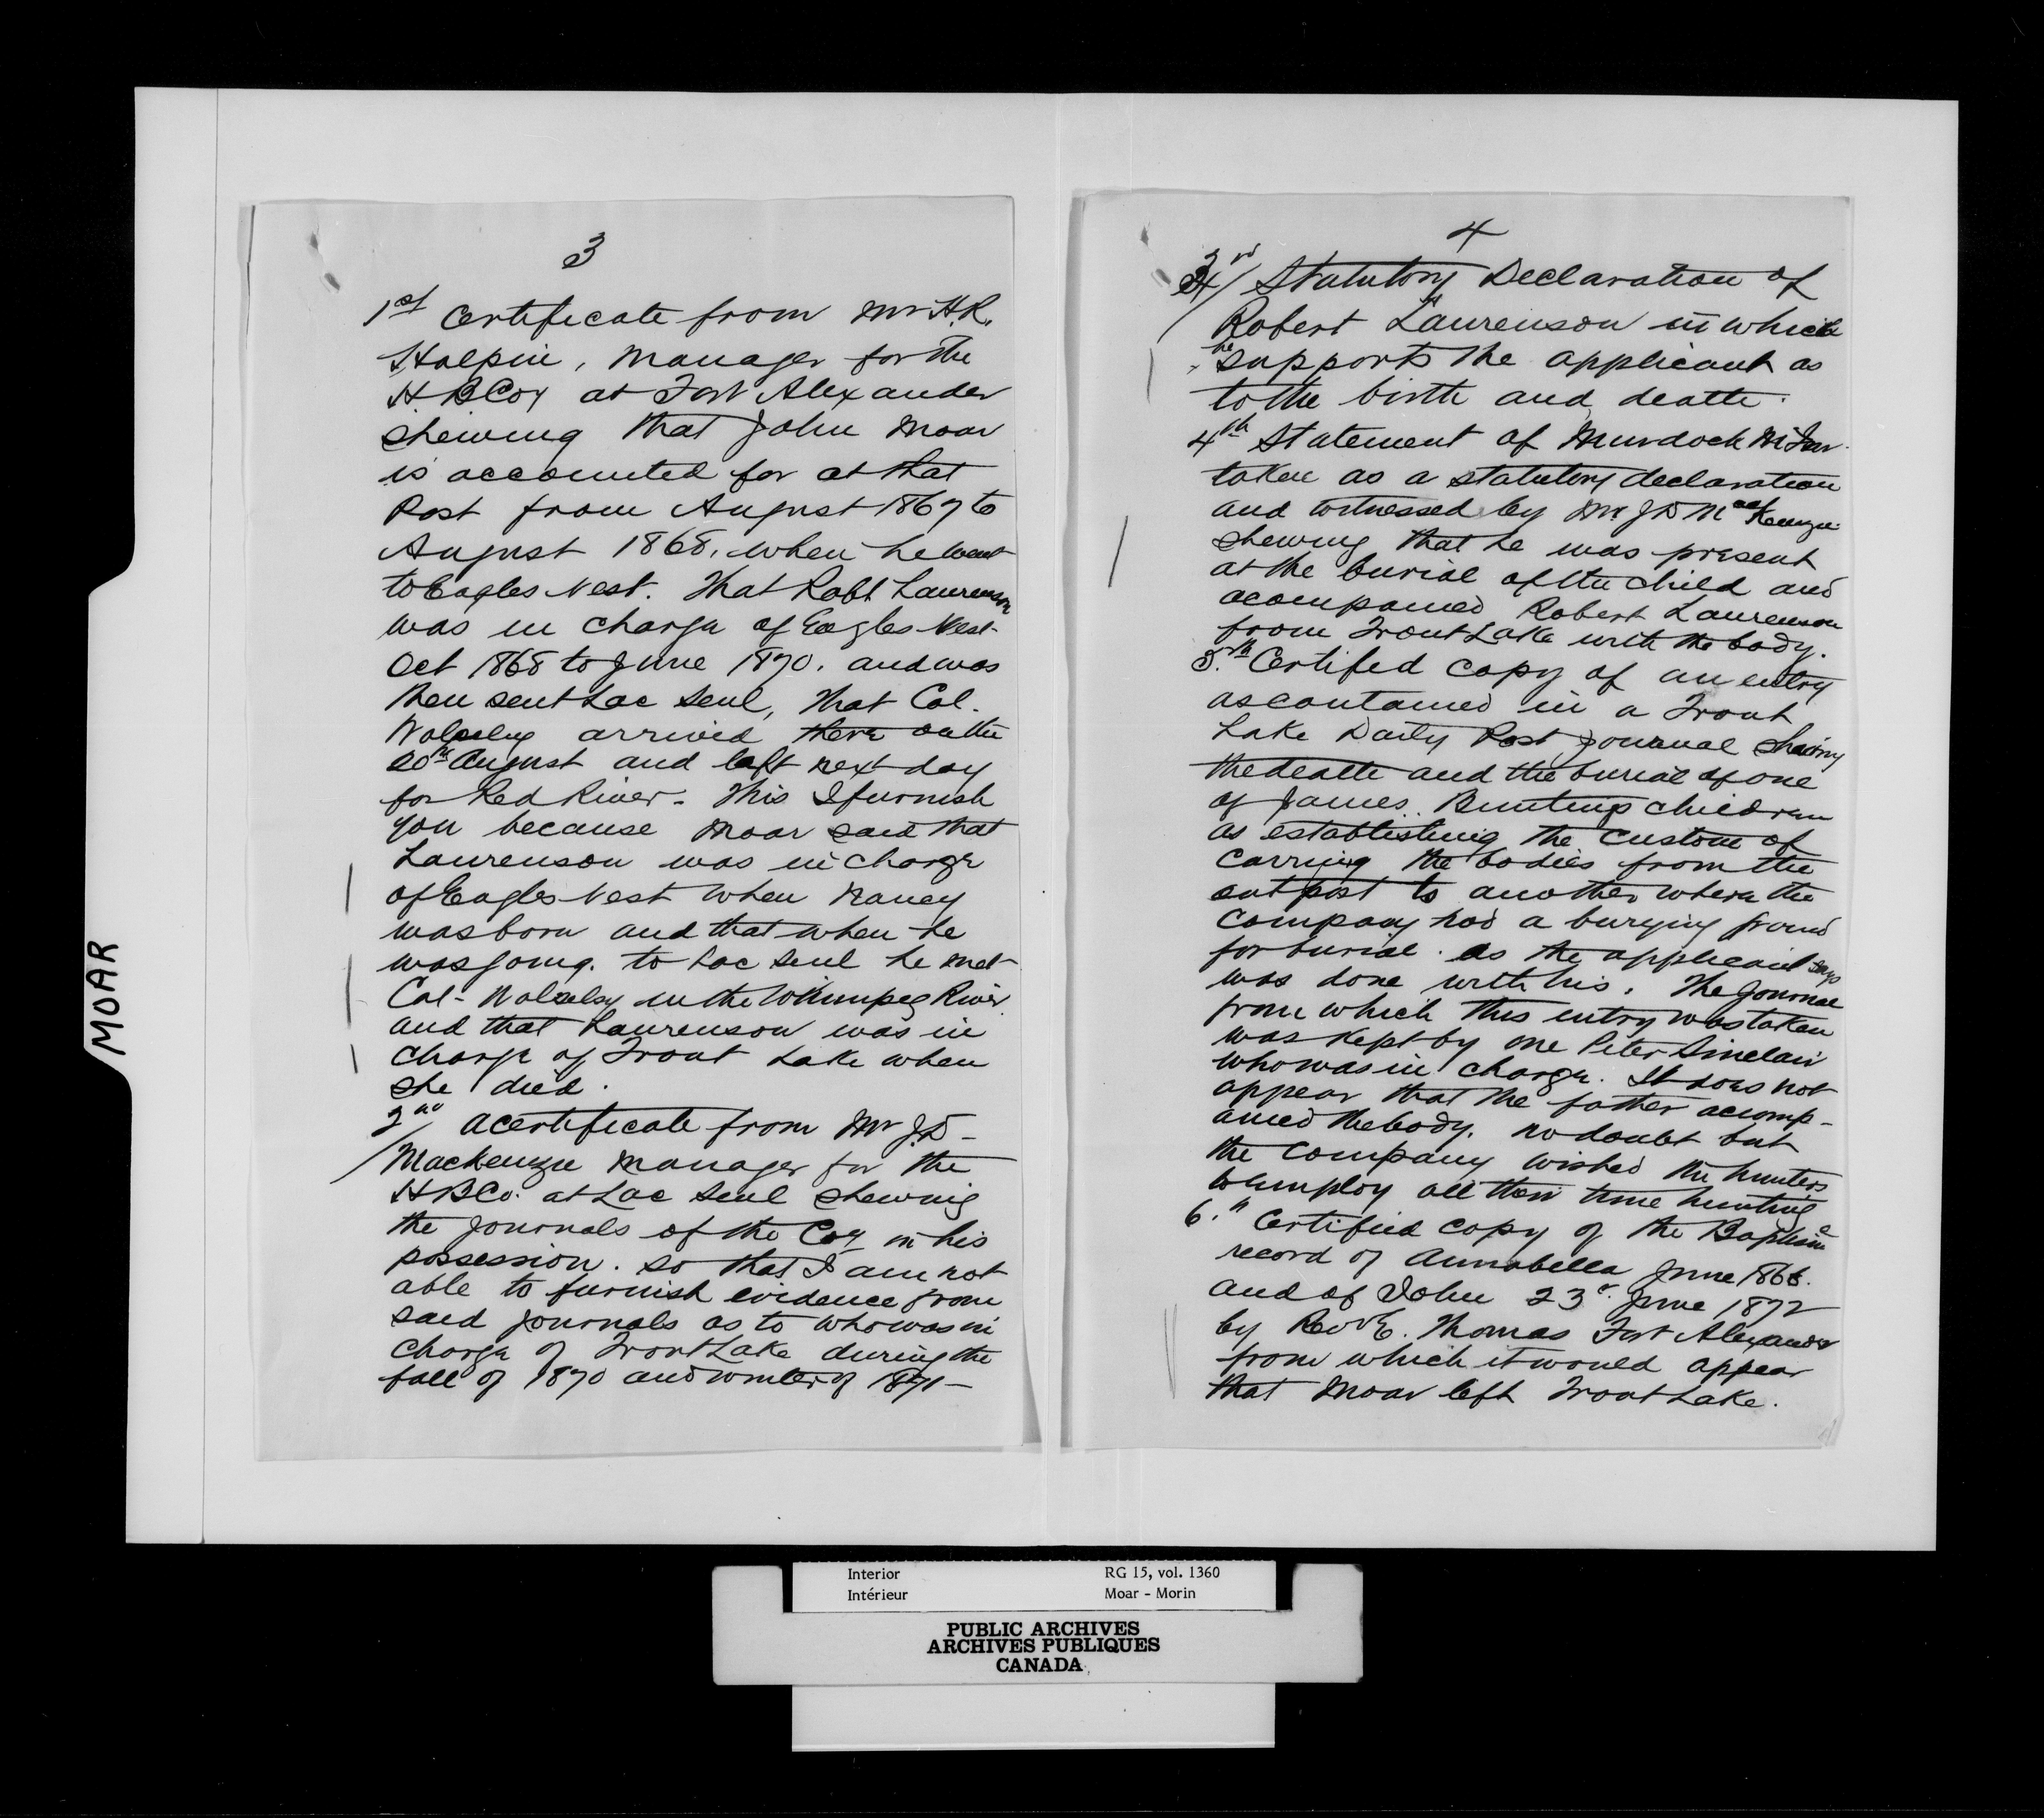 MOAR
3
1st Certificate from Mr H.R.
Halpin, Manager for the
H.B.Coy at Fort Alexander
shewing that John Moar
is accounted for at that
Post from August 1867 to
August 1868, when he went
to Eagles Nest. That Robt Laurenson
was in charge of Eagles Nest-
Oct 1868 to June 1870. and was
then sent Lac Seul, that Col.
Wolseley arrived there on the
20th August and left next day
for Red River. This I furnish
you because Moar said that
Laurenson was in charge
of Eagles Nest when Nancy
was born and that when he
was going to Lac Seul he met
Col- Wolseley in the Winnipeg River
and that Laurenson was in
charge of Trout Lake when
she died.
2nd a certificate from Mr J.D-
Mackenzie Manager for the
H B Co. at Lac Seul shewing
the journals of the Coy in his
possession. so that I am not
able to furnish evidence from
said journals as to who was in
charge of Trout Lake during the
fall of 1870 and winter of 1871-
4
3rd Statutory Declaration of
Robert Laurenson in which
he supports the applicant as
to the birth and death.
4th Statement of Murdock
taken as a statutory declaration
and witnessed by Mr. J D MacKenzie
shewing that he was present
at the burial of the child and
acompanied Robert Laurenson
from Trout Lake with the body.
5.th Certifed copy of an entry
as contained in a Trout
Lake Daily Post Journal shewing
the death and the burial of one
of James Buntings children
as establishing the custom of
carrying the bodies from the
outpost to another where the
Company had a burying ground
for burial. as the applicant says
was done with his. The Journal
from which this entry was taken
was kept by one Peter Sinclair
who was in charge. It does not
appear that the father acomp-
anied the body. no doubt but
the Company wished the hunters
to employ all their time hunting
6.th Certified copy of the Baptism
record of Annabella June 1868.
and of John 23d June 1872
by Revd E. Thomas Fort Alexander
from which it would appear
that Moar left Trout Lake.
Interior RG 15, vol. 1360
Intérieur Moar - Morin
PUBLIC ARCHIVES
ARCHIVES PUBLIQUES
CANADA